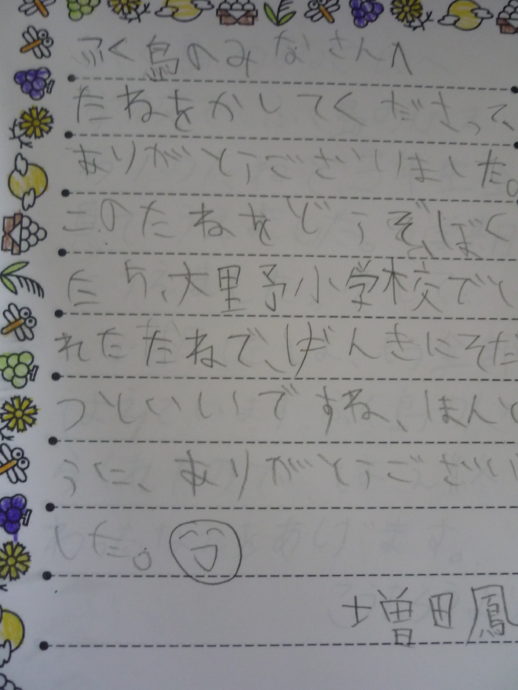 ふく島のみなさんへ
たねをかしてくださって、
ありがとうございました。
このたねをどうぞ、ぼく
たち、大野小学校でと
れたたねで、げんきにそだ
つといいですね、ほんと
うに、ありがとうござい
した。
増田鳳